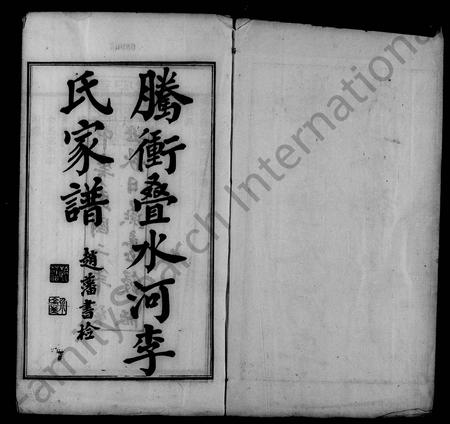 騰衝叠水河李
氏家譜
趙藩書檢
FamilySearch International